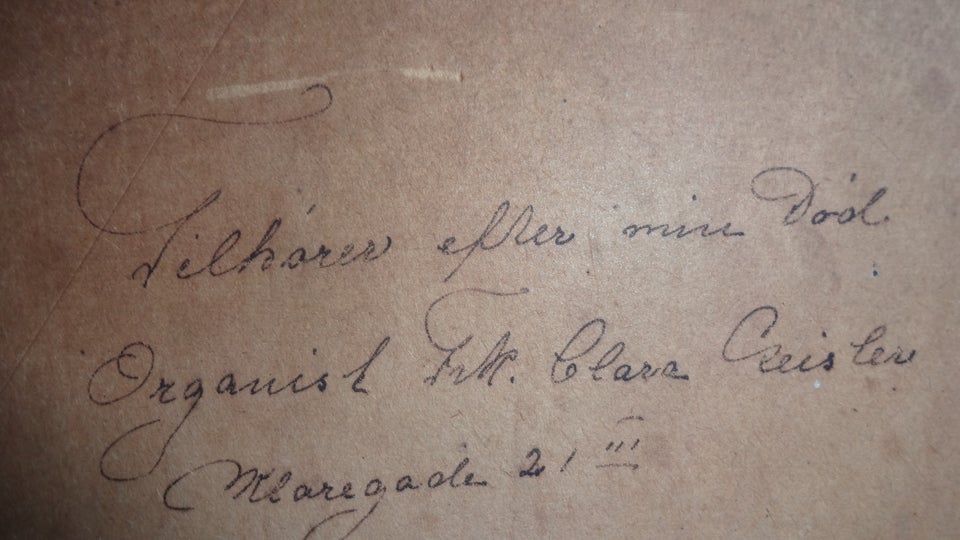 Tilhører efter min Død
Organist Frk. Clara
Klaregade 21 III